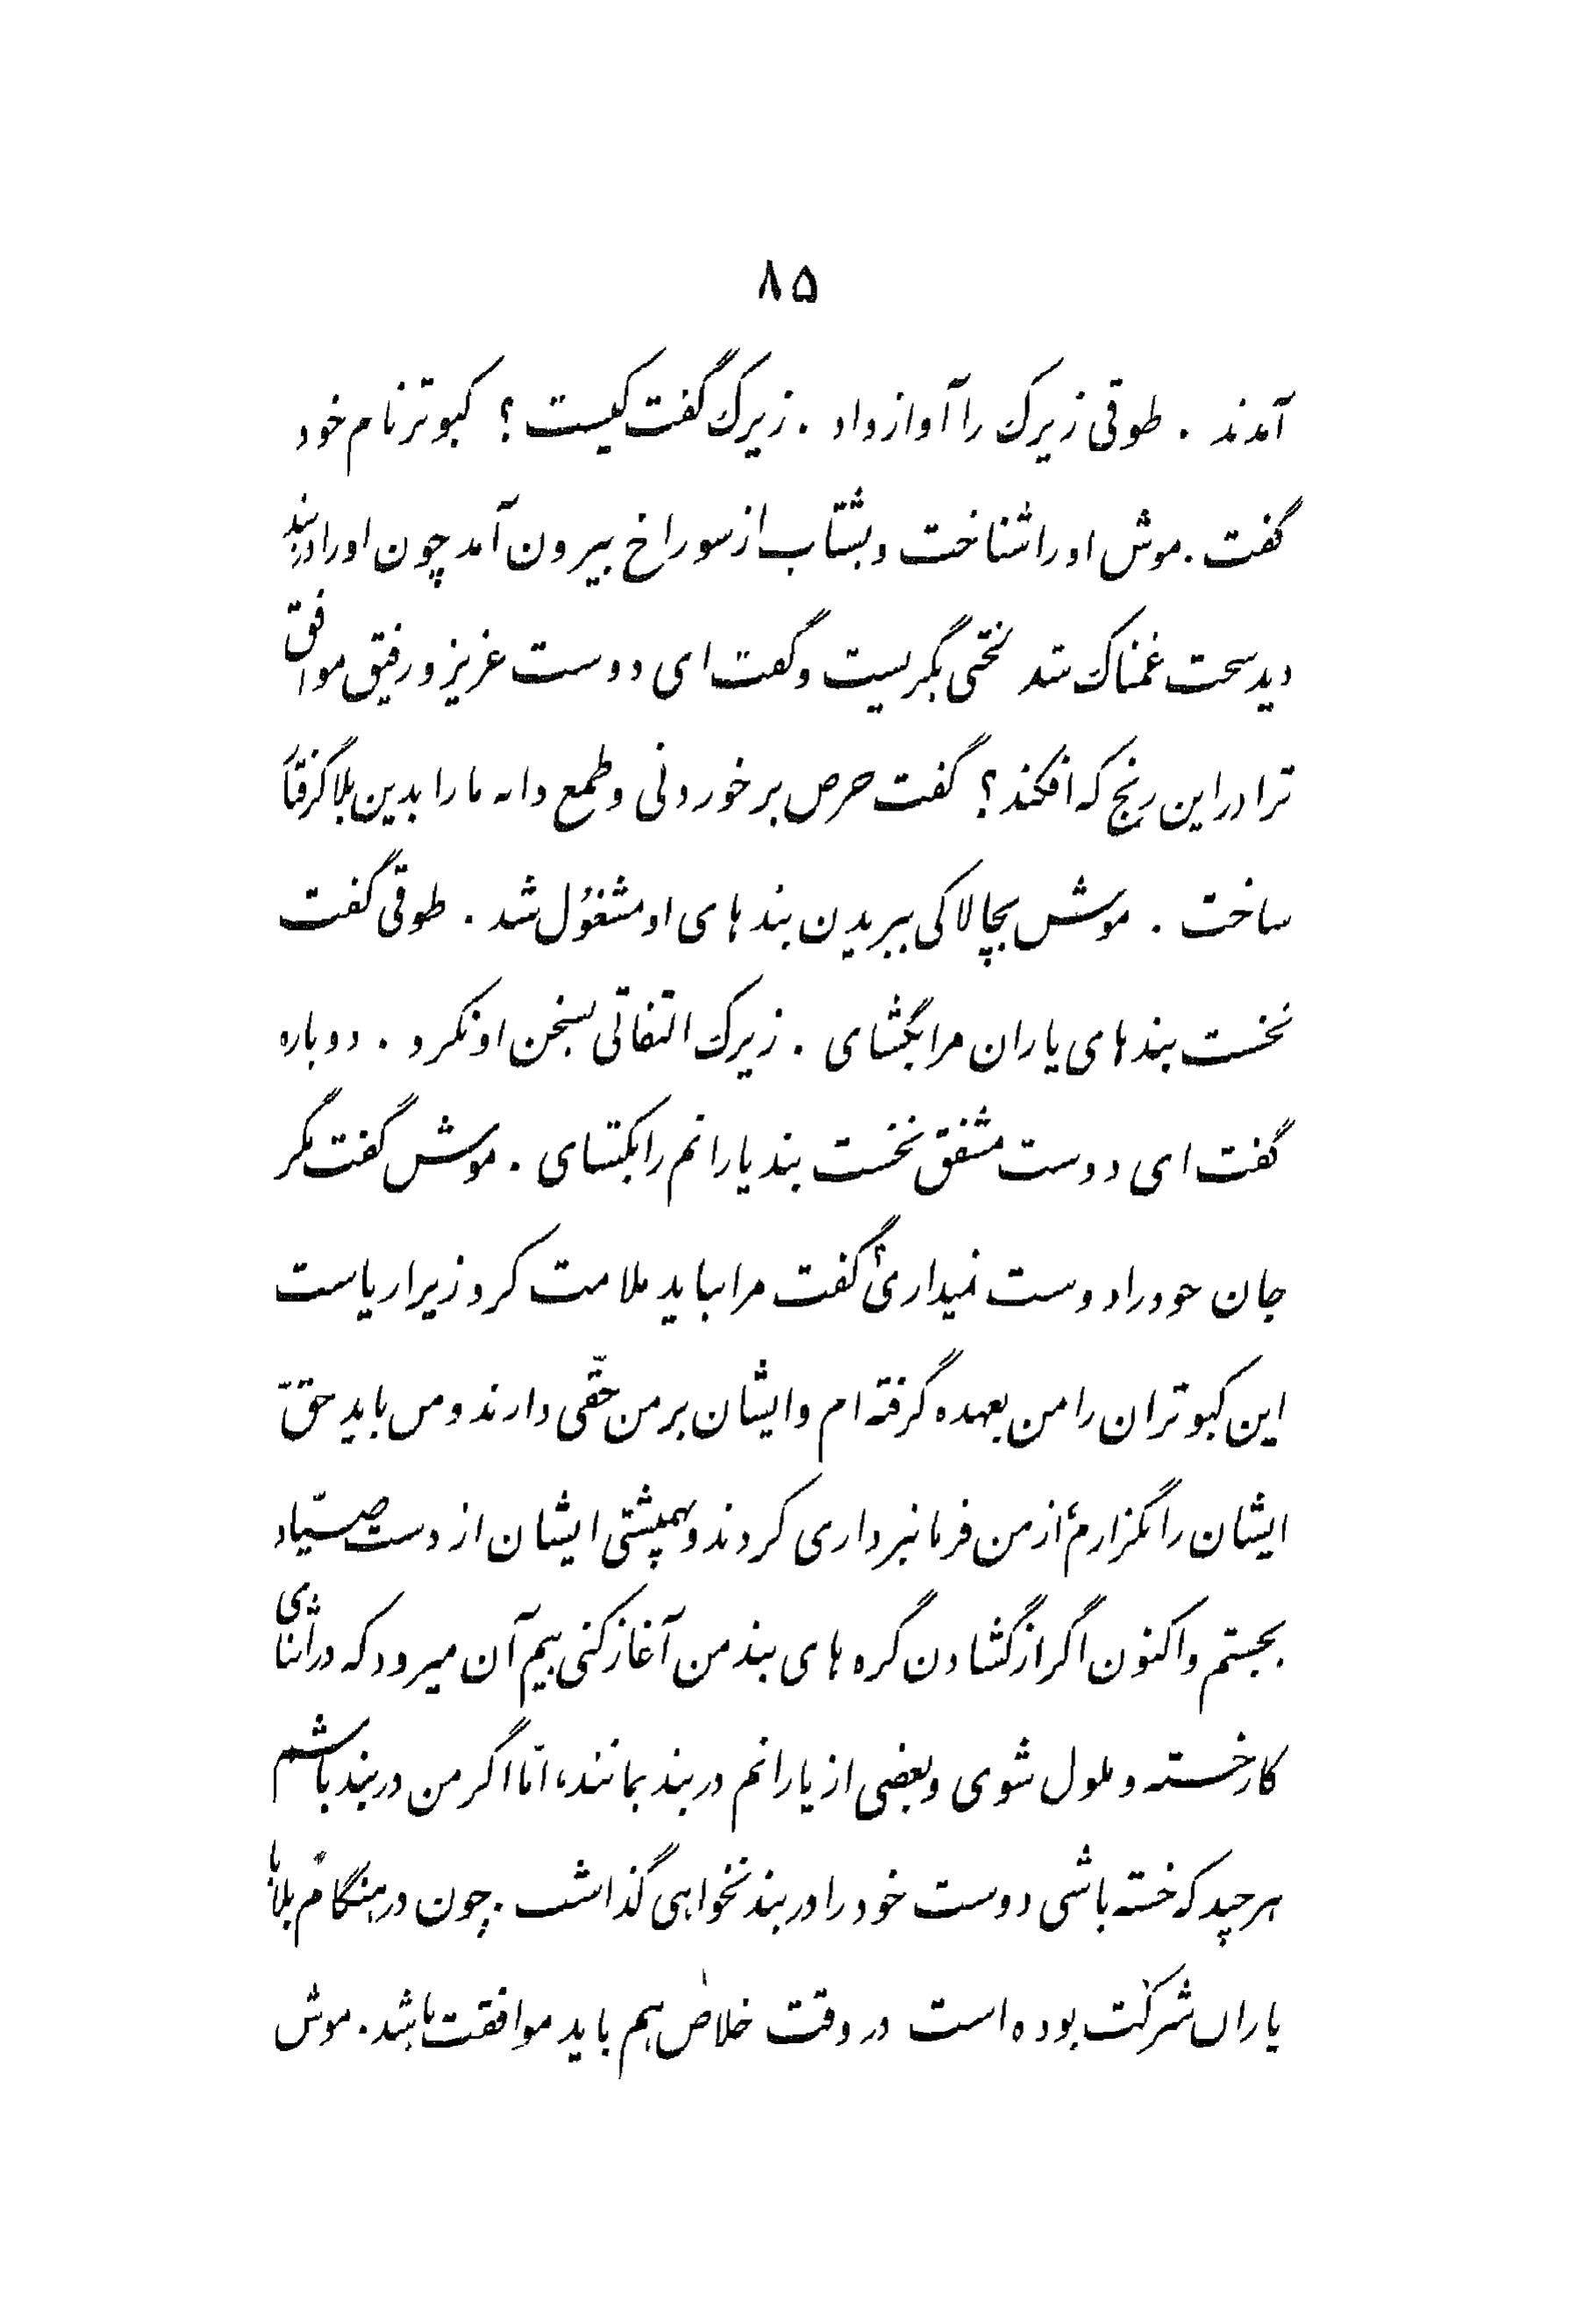 ۸۵
آمدند . طوقی زیرک را آواز داد . زیرک گفت کیست ؟ کبوتر نام خود
گفت . موش او را شناخت و بشتاب از سوراخ بیرون آمد چون او را در بند
دید سخت غمناک شد لختی بگریست و گفت ای دوست عزیز و رفیق موافق
ترا در این رنج که افکند ؟ گفت حرص بر خوردنی و طمع دانه ما را بدین بلا گرفتار
ساخت . موش بچالاکی ببریدن بندهای او مشغول شد . طوقی گفت
نخست بندهای یاران مرا بگشای . زیرک التفاتی بسخن او نکرد . دوباره
گفت ای دوست مشفق نخست بند یارانم را بگشای . موش گفت مگر
جان خود را دوست نمیداری؟ گفت مرا نباید ملامت کرد زیرا ریاست
این کبوتران را من بعهده گرفته ام و ایشان بر من حقّی دارند و من باید حقّ
ایشان را بگزارم از من فرمانبرداری کردند و بهمپشتی ایشان از دست صیّاد
بجستم و اکنون اگر از گشادن گره های بند من آغاز کنی بیم آن میرود که در اثنای
کار خسته و ملول شوی و بعضی از یارانم در بند بمانند، امّا اگر من در بند باشم
هر چند که خسته باشی دوست خود را در بند نخواهی گذاشت . چون در هنگام بلا با
یاران شرکت بوده است در وقت خلاص هم باید موافقت باشد . موش